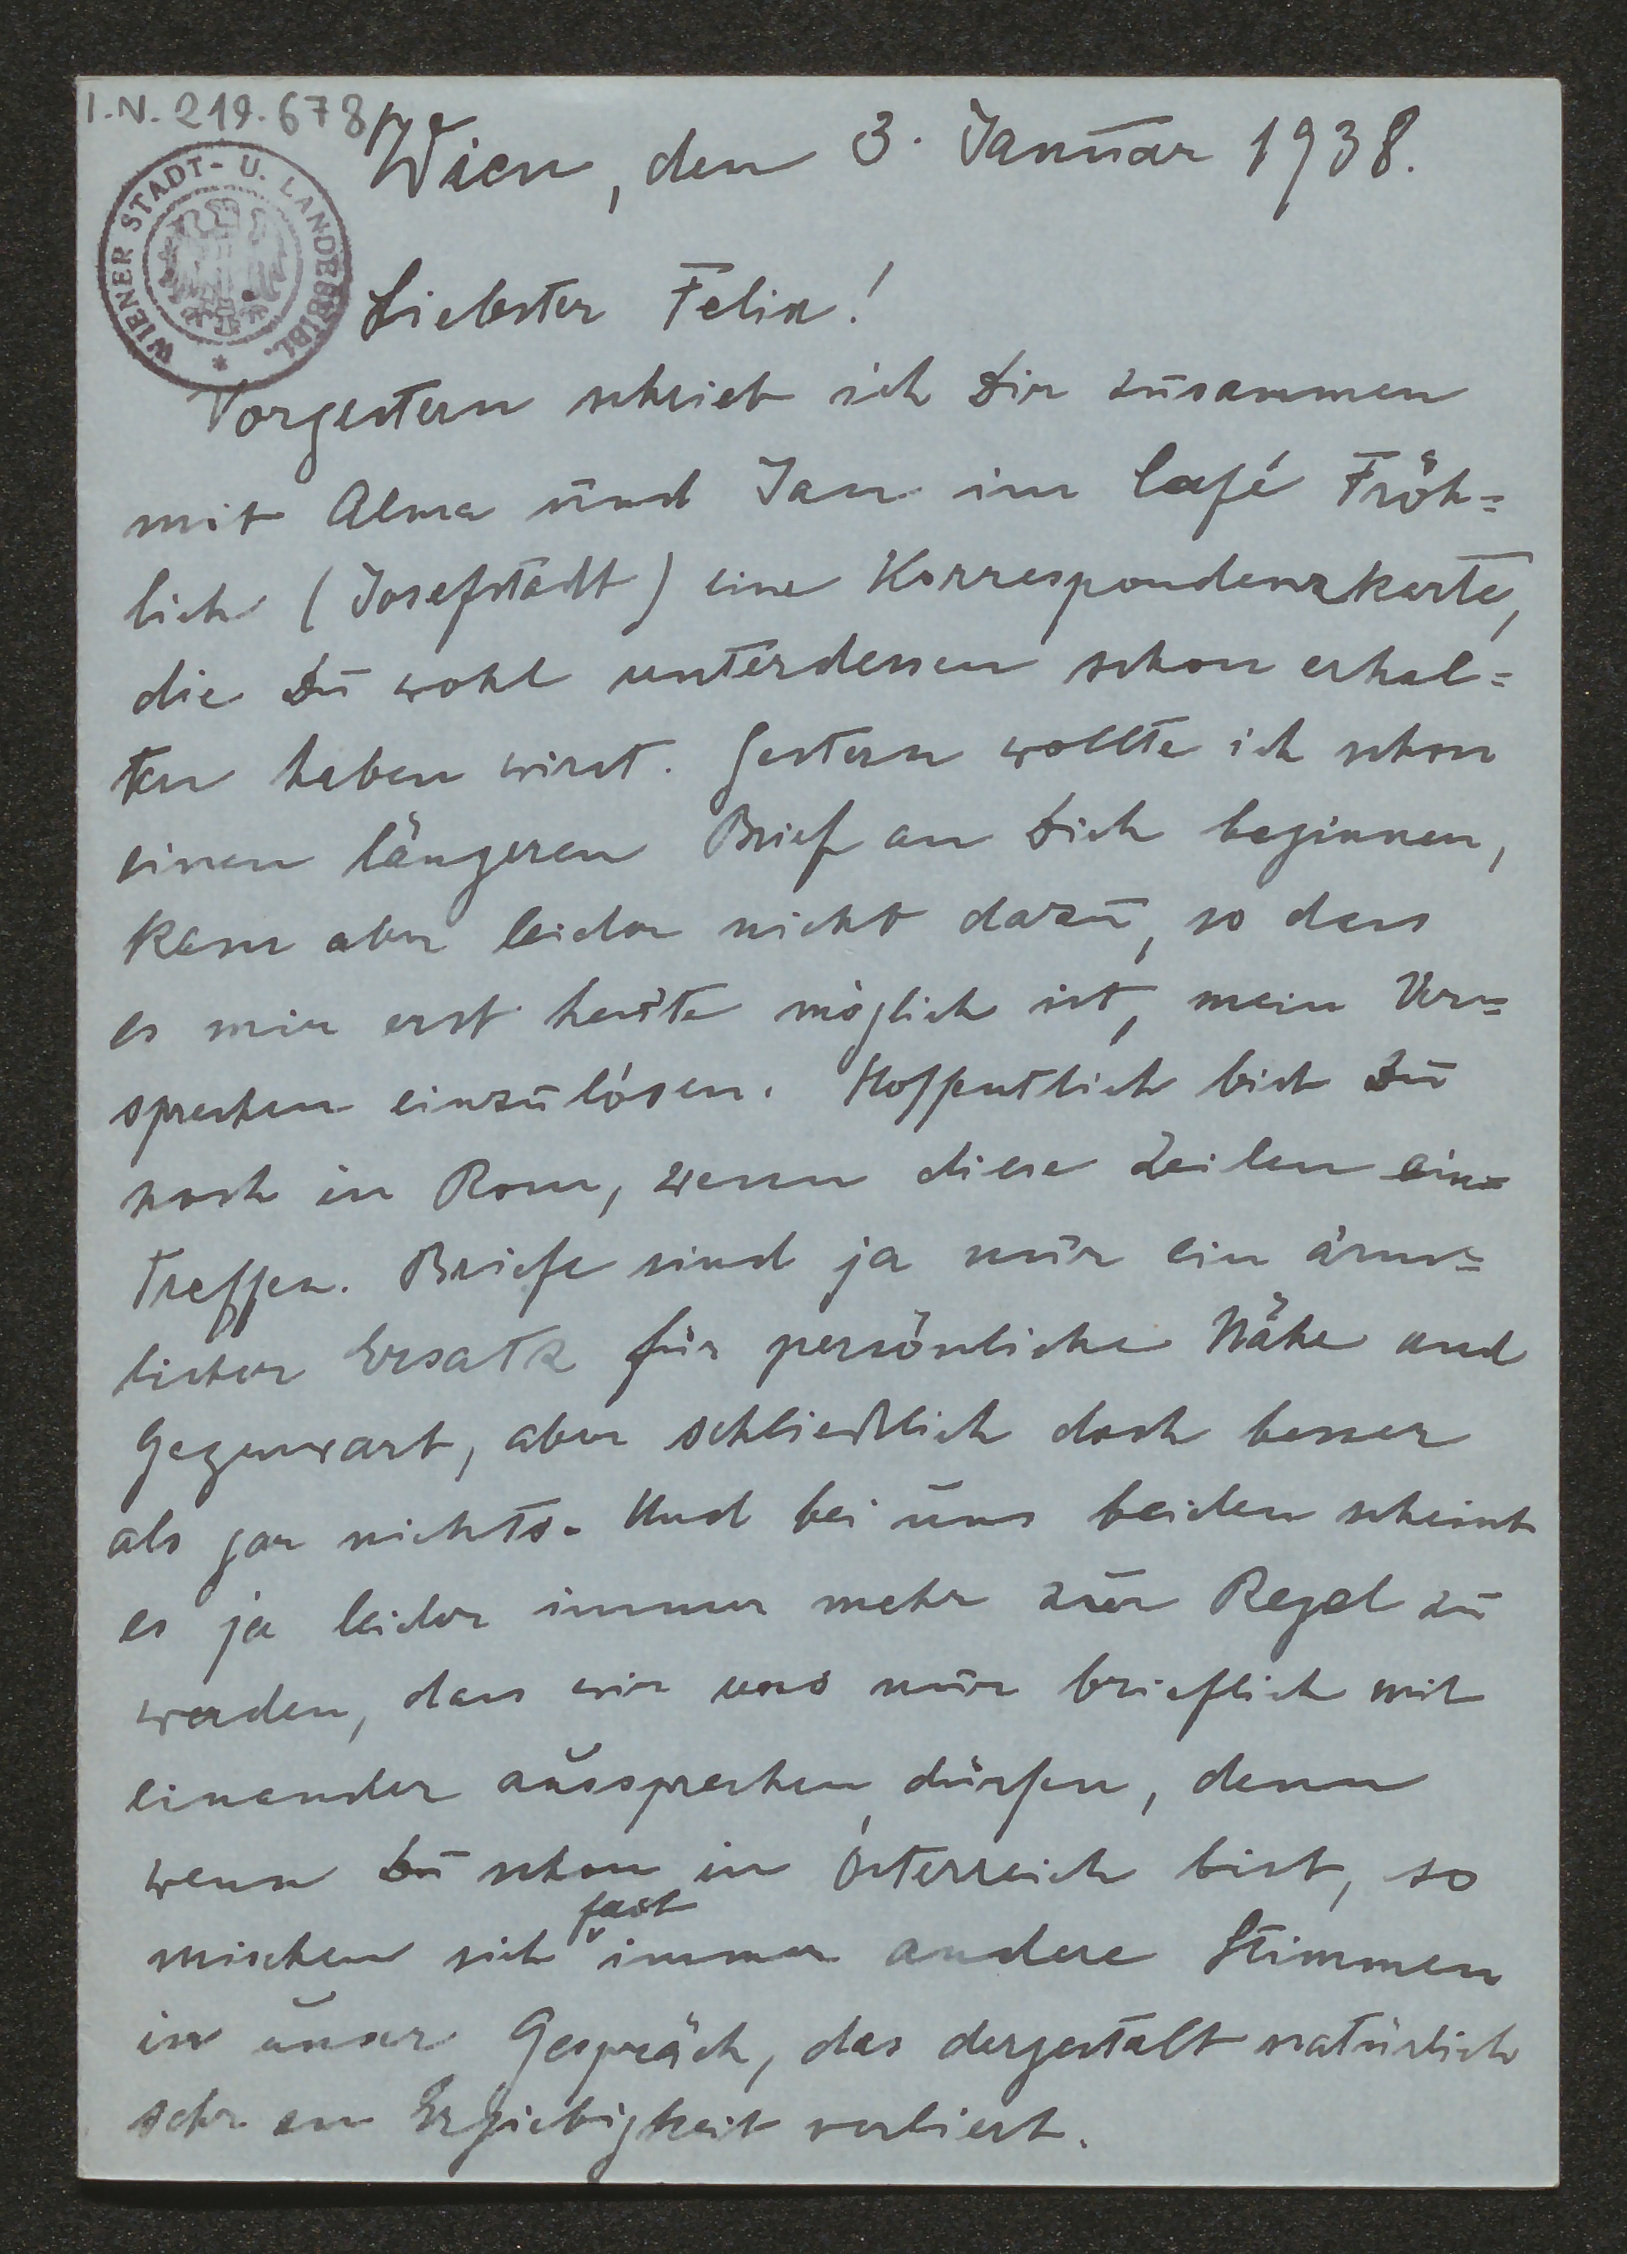 I.N. 219.678
WIENER STADT- U. LANDESBIBL. *
Wien, den 3. Januar 1938.
Liebster Felix!
Vorgestern schrieb ich Dir zusammen
mit Alma und Jan im Café Fröh=
lich (Josefstadt) eine Korrespondenzkarte,
die Du wohl unterdessen schon erhal=
ten haben wirst. Gestern wollte ich schon
einen längeren Brief an Dich beginnen,
kam aber leider nicht dazu, so dass
es mir erst heute möglich ist, mein Ver=
sprechen einzulösen. Hoffentlich bist Du
noch in Rom, wenn diese Zeilen ein=
treffen. Briefe sind ja nur ein ärm=
licher Ersatz für persönliche Nähe und
Gegenwart, aber schließlich doch besser
als gar nichts. Und bei uns beiden scheint
es ja leider immer mehr zur Regel zu
werden, dass wir uns nur brieflich mit
einander aussprechen dürfen, denn
wenn Du schon in Österreich bist, so
mischen sich fast immer andere Stimmen
in unser Gespräch, das dergestalt natürlich
sehr an Ergiebigkeit verliert.